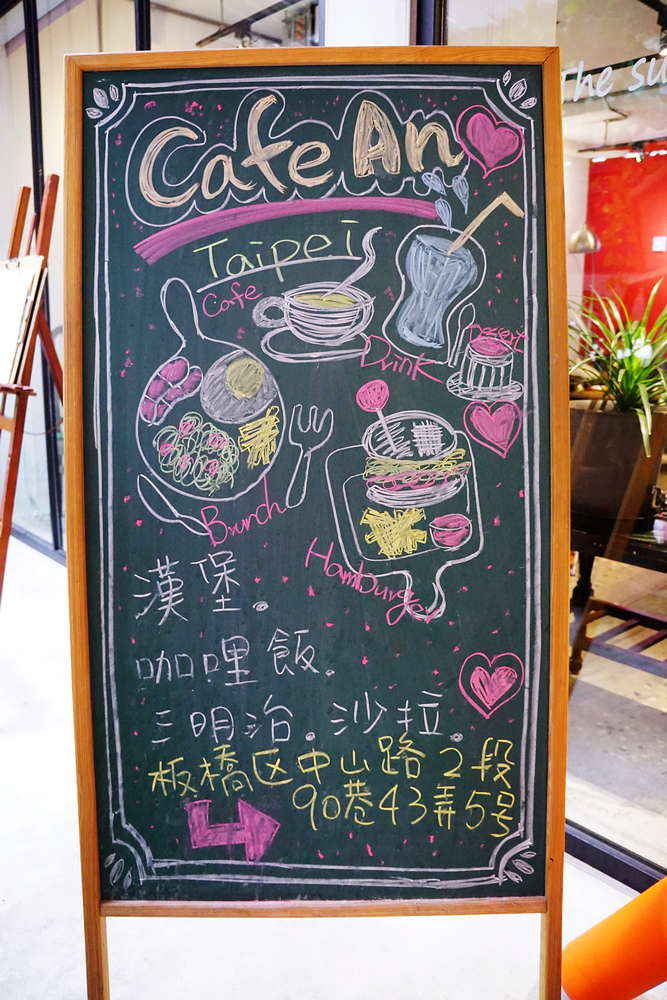 The su
Cafe An
Taipei
Cafe
Drink
Dessert
Brunch
Hamburger
漢堡.
咖哩飯.
三明治.沙拉.
板橋区中山路2段
90巷43弄5号